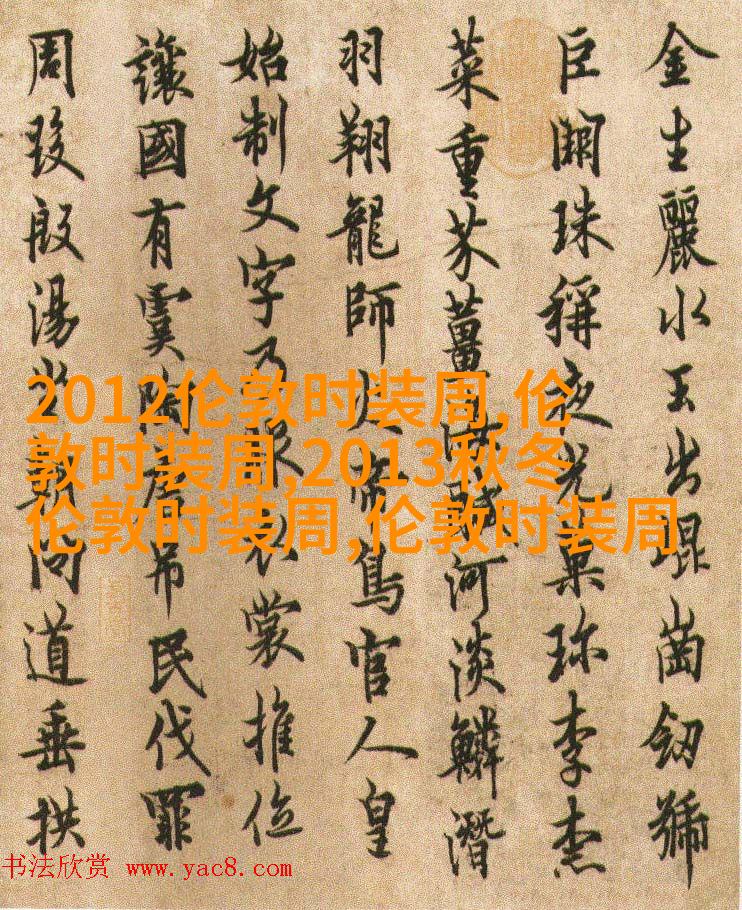 金生麗水玉出崐崗劒號
巨闕珠稱夜光菓珎李柰
菜重芥薑海醎河淡鱗潛
羽翔龍師火帝鳥官人皇
始制文字乃服衣裳推位
讓國有虞陶唐吊民伐罪
周發殷湯坐朝問道垂拱
2012伦敦时装周,伦
敦时装周,2013秋冬
伦敦时装周,伦敦时装周
书法欣赏 www.yac8.com